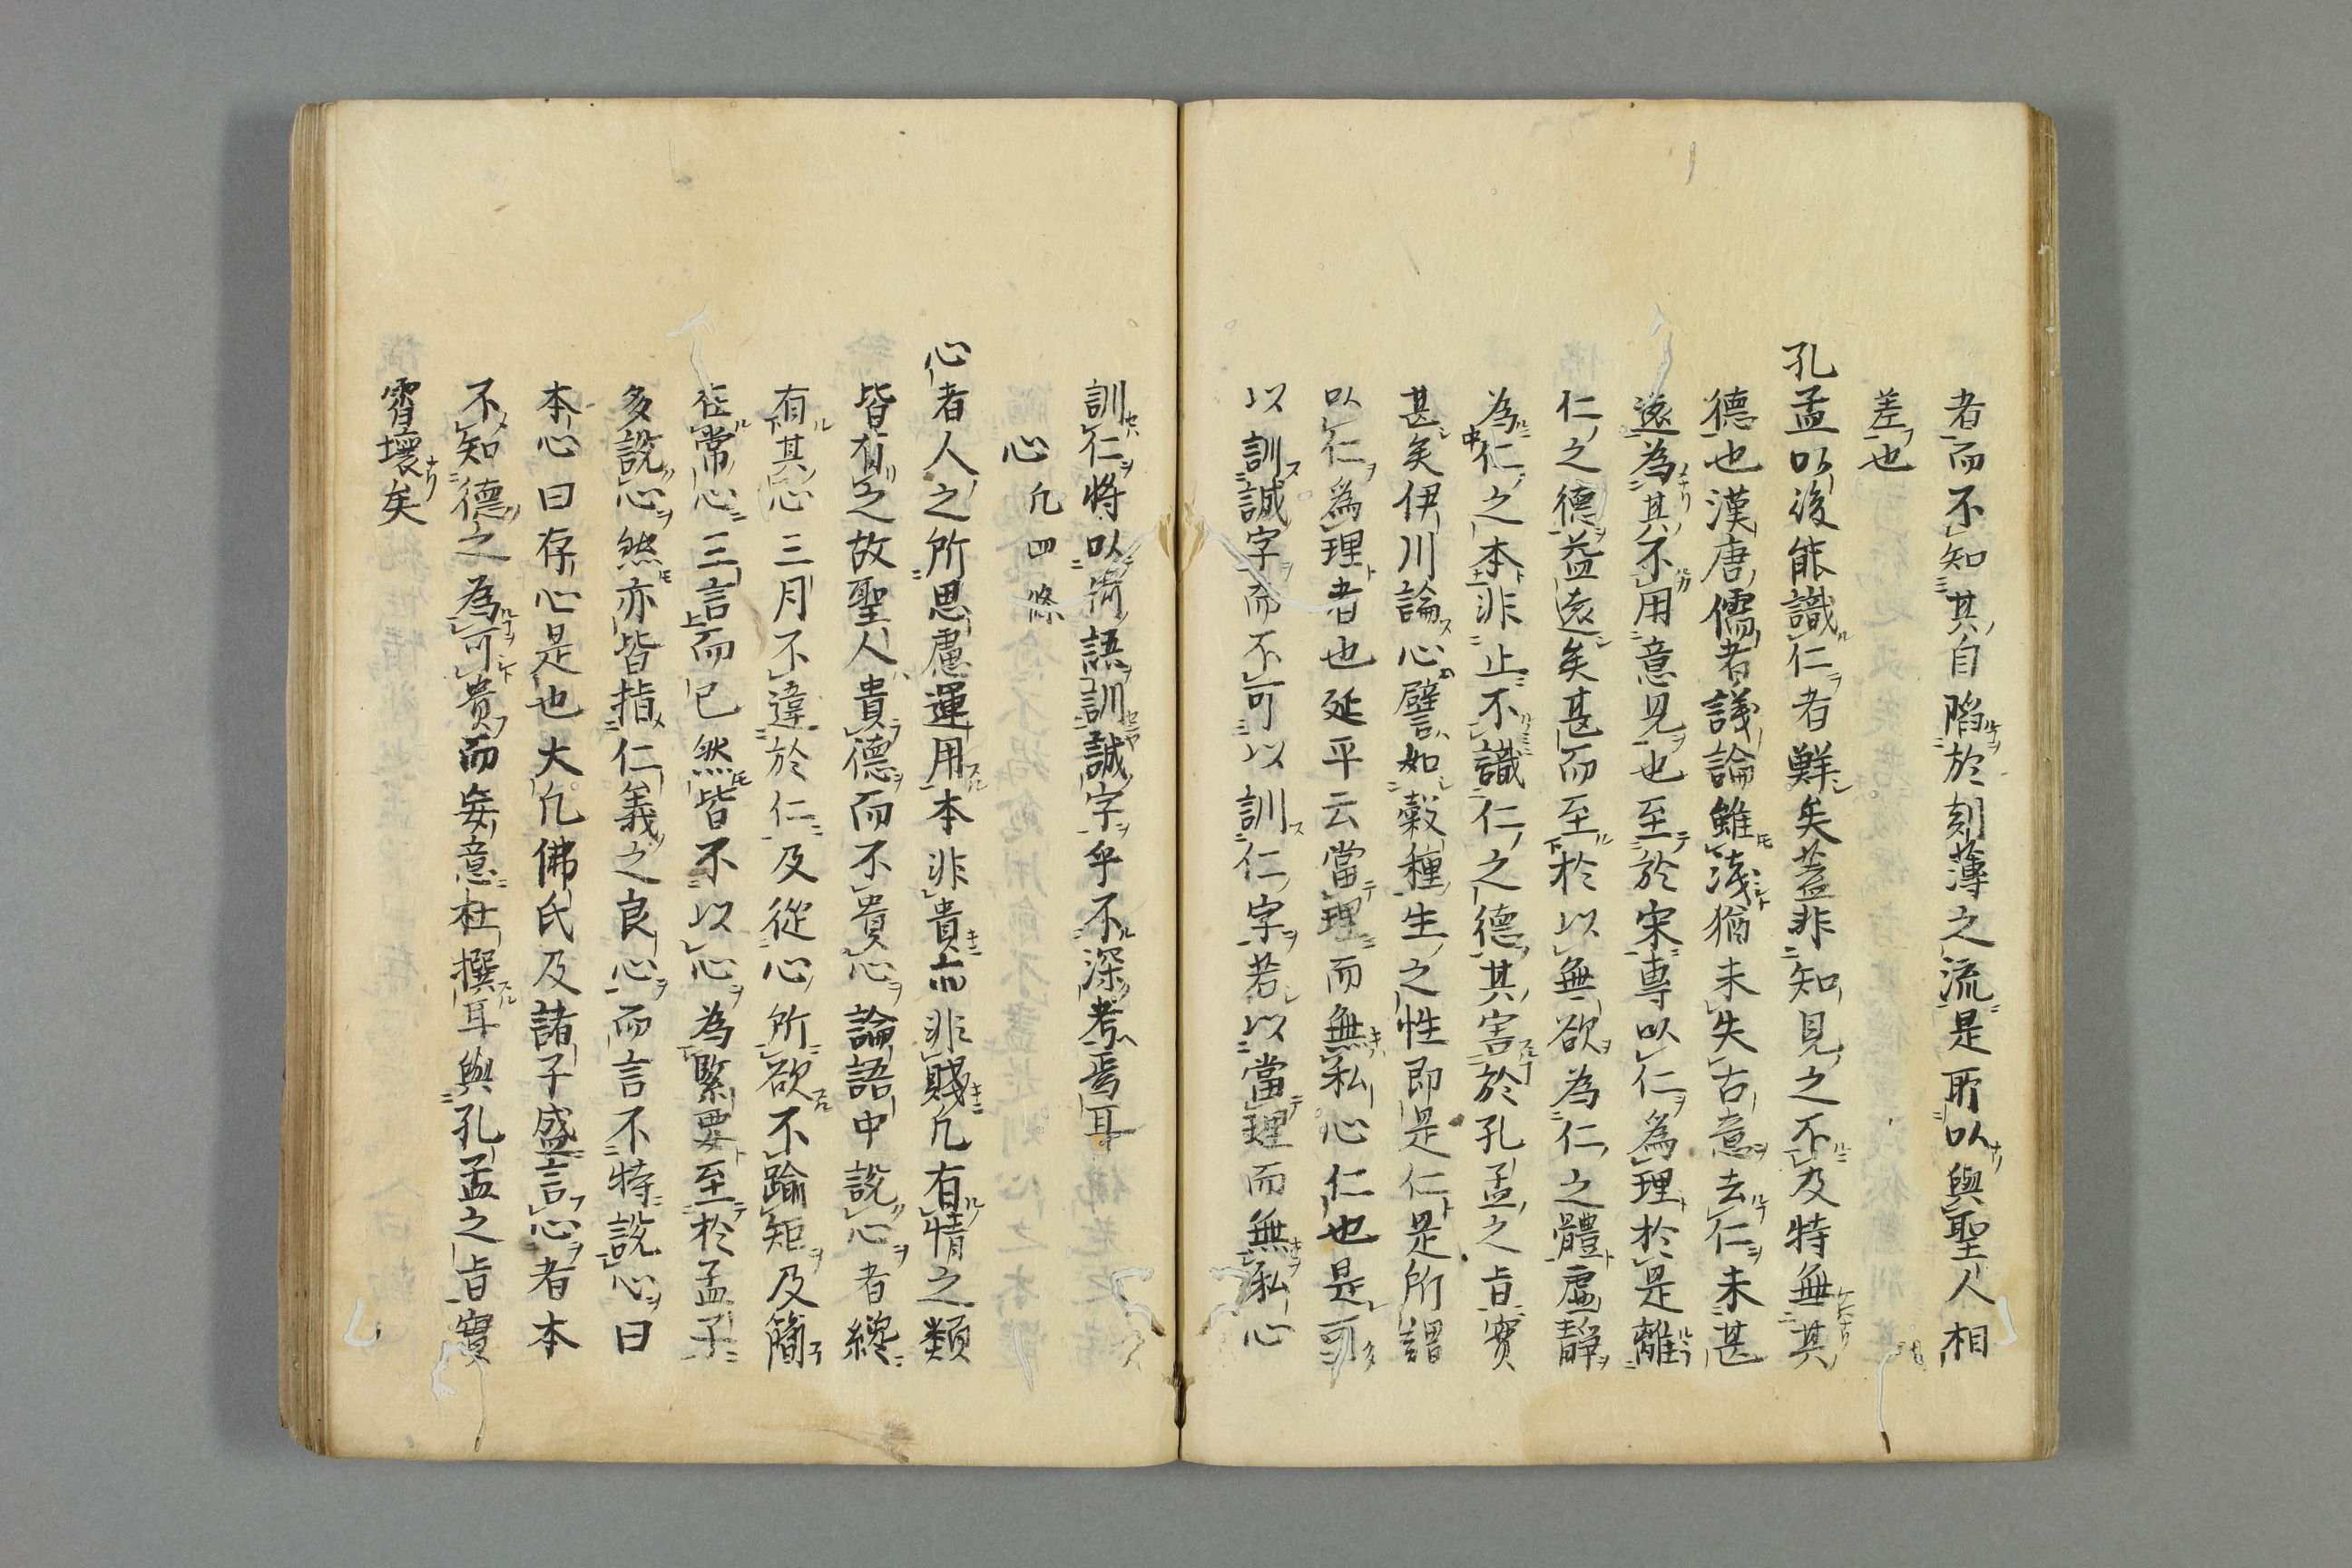 者而不知其自陷於刻薄之流是所以與聖人相
差也
孔孟以後能識仁者鮮矣蓋非知見之不及特無其
德也漢唐儒者議論雖淺猶未失古意去仁未甚
遠為其不用意見也至於宋専以仁為理於是離
仁之德益遠矣甚而至於以無欲為仁之體虛靜
為仁之本非止不識仁之德其害於孔孟之旨實
甚矣伊川論心譬如穀種生之性即是仁是所謂
以仁為理者也延平云當理而無私心仁也是可
以訓誠字而不可以訓仁字若以當理而無私心
訓仁將以何語訓誠字乎不深考焉耳
心 凢四條
心者人之所思慮運用本非貴而非賤凢有情之類
皆有之故聖人貴德而不貴心論語中説心者纔
有其心三月不違於仁及從心所欲不踰矩及簡
在常心三言而已然皆不以心為緊要至於孟子
多説心然亦皆指仁義之良心而言不特説心曰
本心曰存心是也大凢佛氏及諸子盛言心者本
不知德之為可貴而妄意杜撰耳與孔孟之旨實
霄壤矣